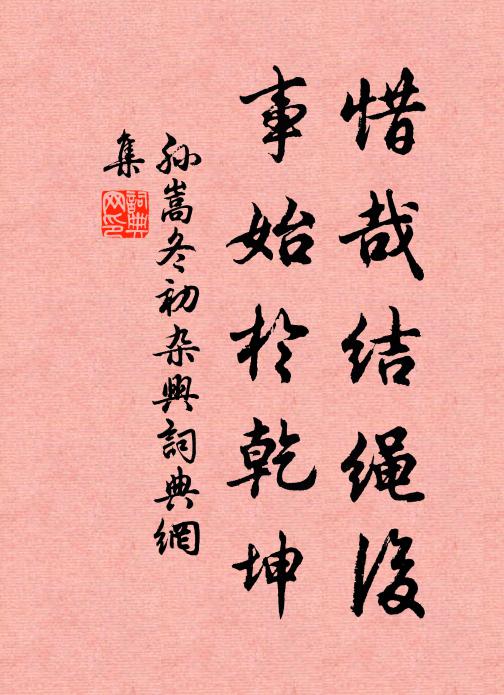 惜哉结绳后
事始於乾坤
孙嵩冬初杂兴词典網
集
詞典
网印